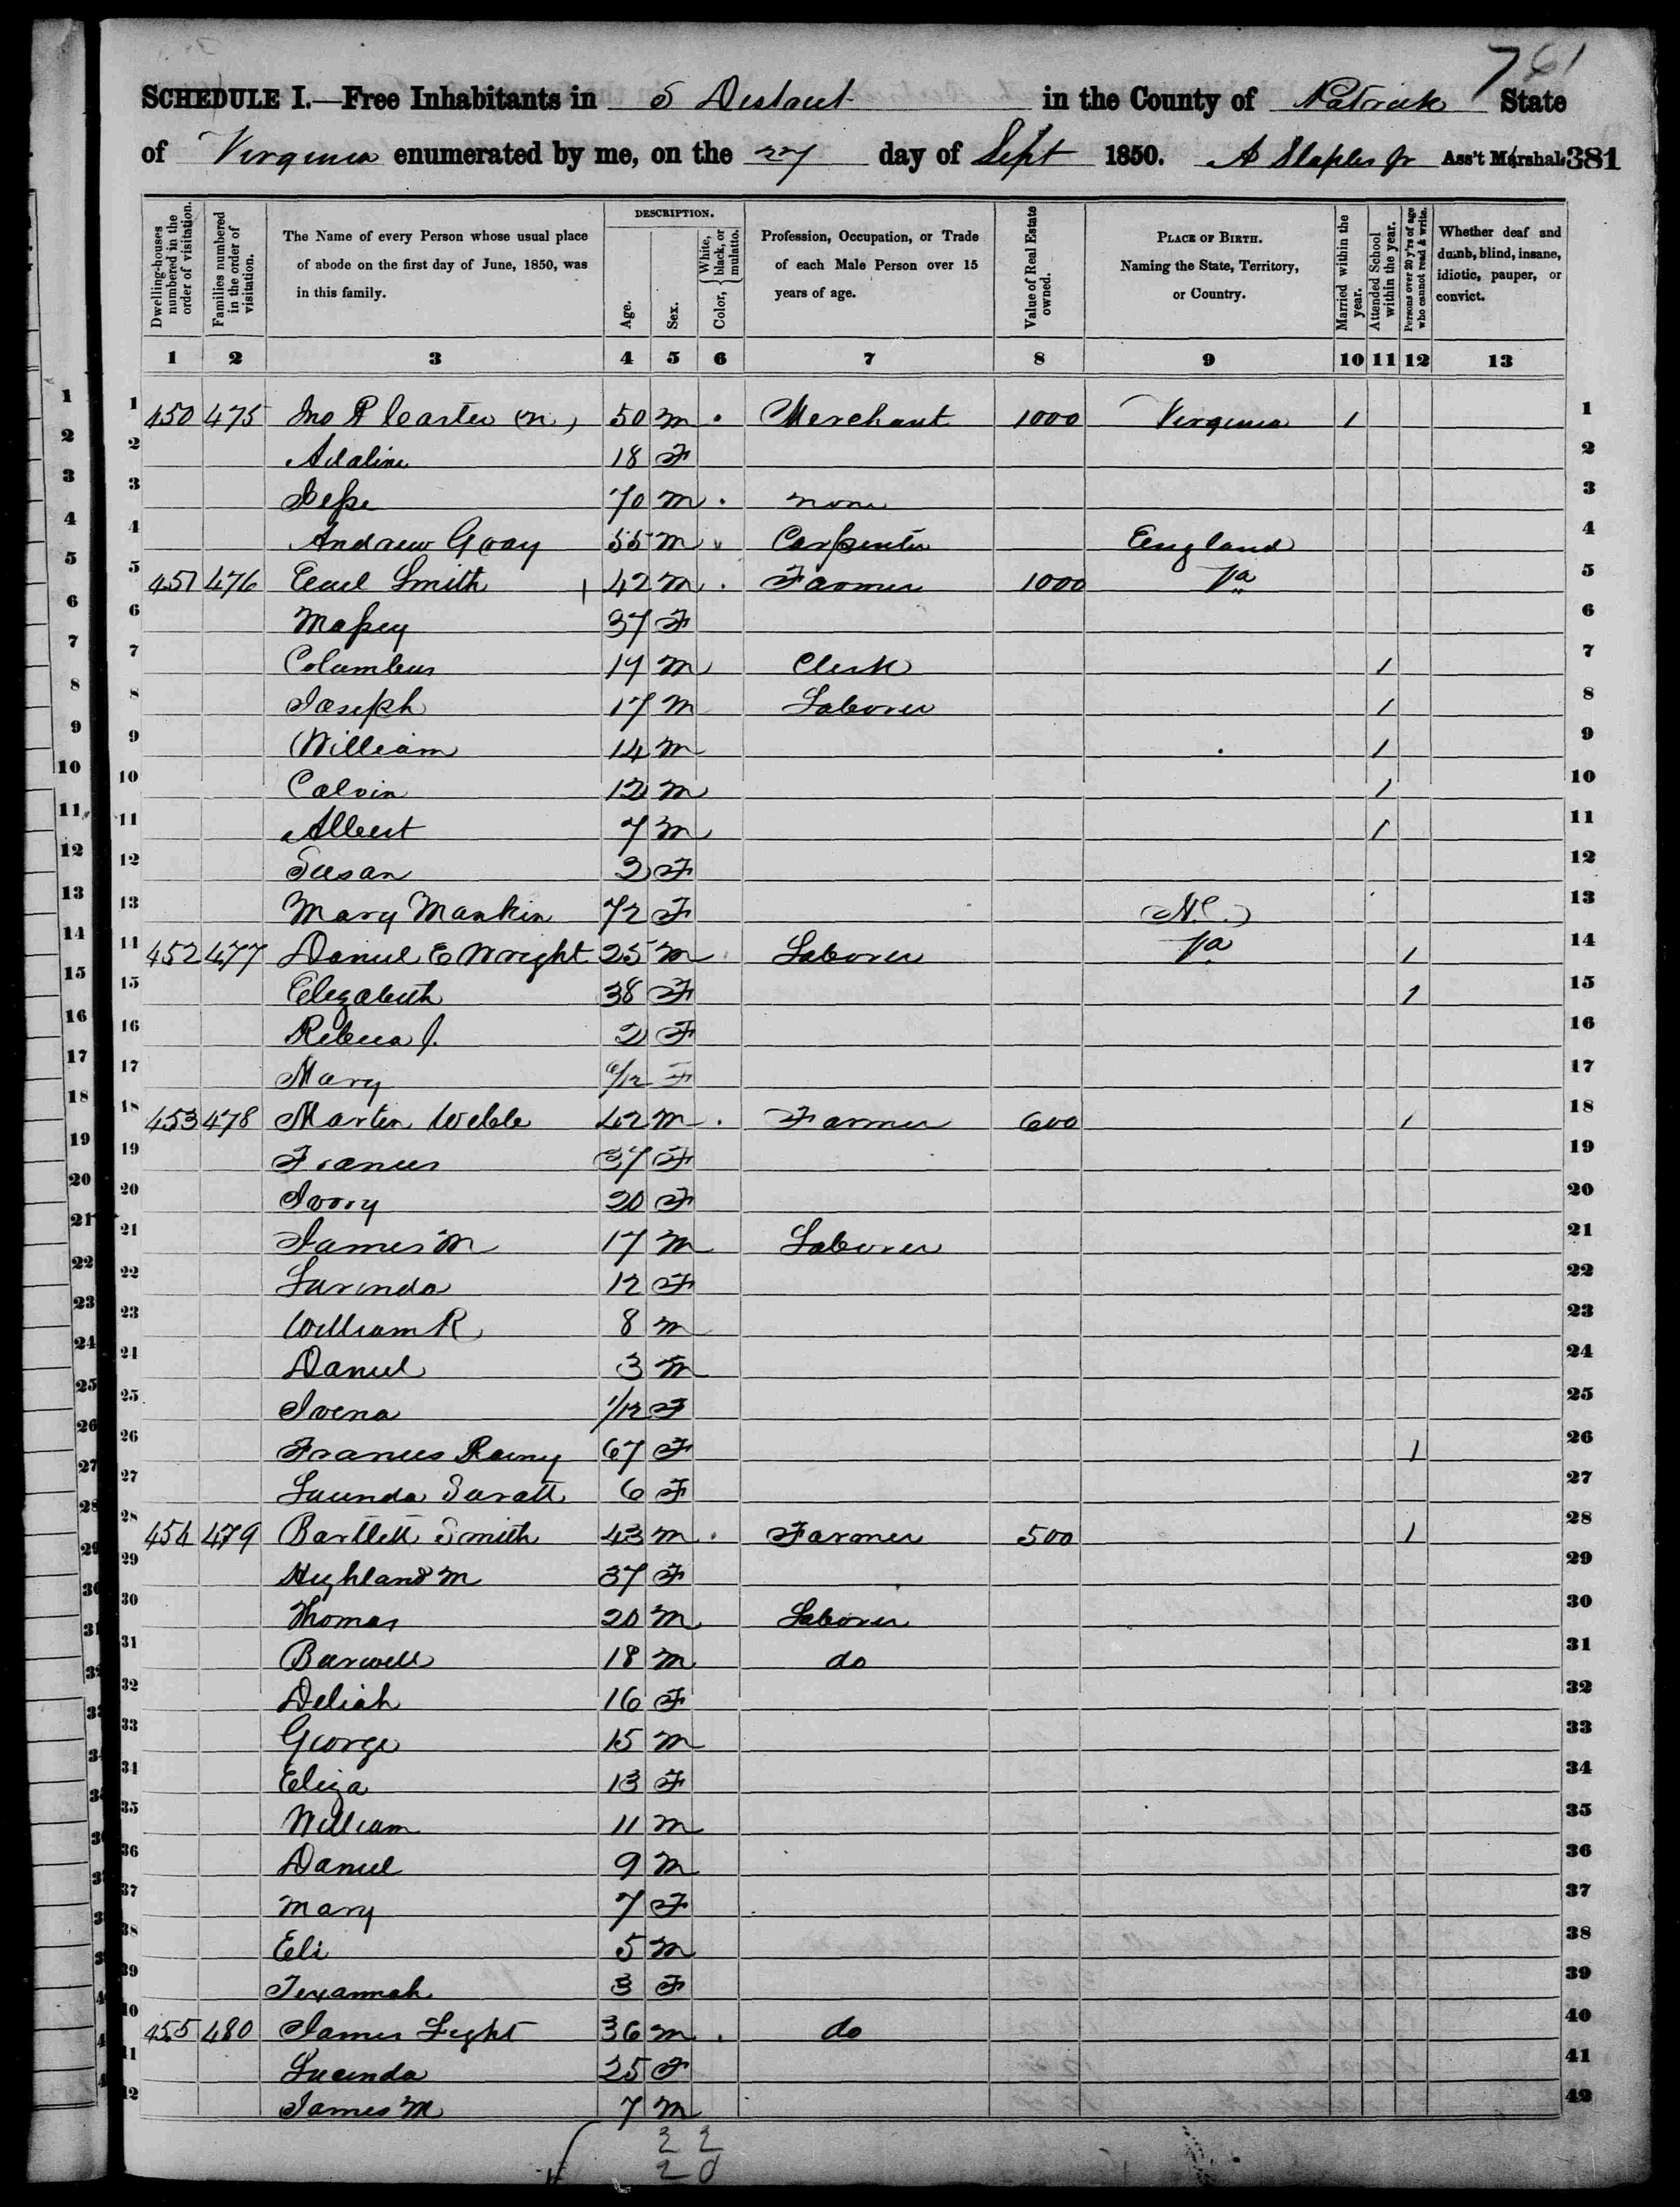 761
SCHEDULE I.—Free Inhabitants in S District in the County of Patrick State
of Virginia enumerated by me, on the 27 day of Sept 1850. A Staples Jr Ass't Marshal. 381
Dwelling-houses numbered in the order of visitation.
Families numbered in the order of visitation.
The Name of every Person whose usual place of abode on the first day of June, 1850, was in this family.
DESCRIPTION.
Age.
Sex.
Color, White, black, or mulatto.
Profession, Occupation, or Trade of each Male Person over 15 years of age.
Value of Real Estate owned.
PLACE OF BIRTH. Naming the State, Territory, or Country.
Married within the year.
Attended School within the year.
Persons over 20 y'rs of age who cannot read & write.
Whether deaf and dumb, blind, insane, idiotic, pauper, or convict.
1 2 3 4 5 6 7 8 9 10 11 12 13
1 450 475 Jno R Carter (n) 50 m Merchant 1000 Virginia 1 1
2 Adaline 18 F 2
3 Jesse 70 m none 3
4 Andrew Gray 55 m Carpenter England 4
5 451 476 Earl Smith 42 m Farmer 1000 Va 5
6 Massey 37 F 6
7 Columbus 19 m Clerk 1 7
8 Joseph 17 m Laborer 1 8
9 William 14 m 1 9
10 Calvin 12 m 1 10
11 Albert 7 m 1 11
12 Susan 2 F 12
13 Mary Mankin 72 F N.C. 13
14 452 477 Daniel E Wright 25 m Laborer Va 1 14
15 Elizabeth 38 F 1 15
16 Rebeca J. 2 F 16
17 Mary 6/12 F 17
18 453 478 Martin Webb 42 m Farmer 600 1 18
19 Frances 37 F 19
20 Ivory 20 F 20
21 James M 17 m Laborer 21
22 Lurinda 12 F 22
23 William R 8 m 23
24 Daniel 3 m 24
25 Ivena 1/12 F 25
26 Frances Rainy 67 F 1 26
27 Lucinda Suratt 6 F 27
28 454 479 Bartlett Smith 43 m Farmer 500 1 28
29 Highland M 37 F 29
30 Thomas 20 m Laborer 30
31 Burwell 18 m do 31
32 Deliah 16 F 32
33 George 15 m 33
34 Eliza 13 F 34
35 William 11 m 35
36 Daniel 9 m 36
37 Mary 7 F 37
38 Eli 5 m 38
39 Texannah 3 F 39
40 455 480 James Light 36 m do 40
41 Lucinda 25 F 41
42 James M 7 m 42
22
20